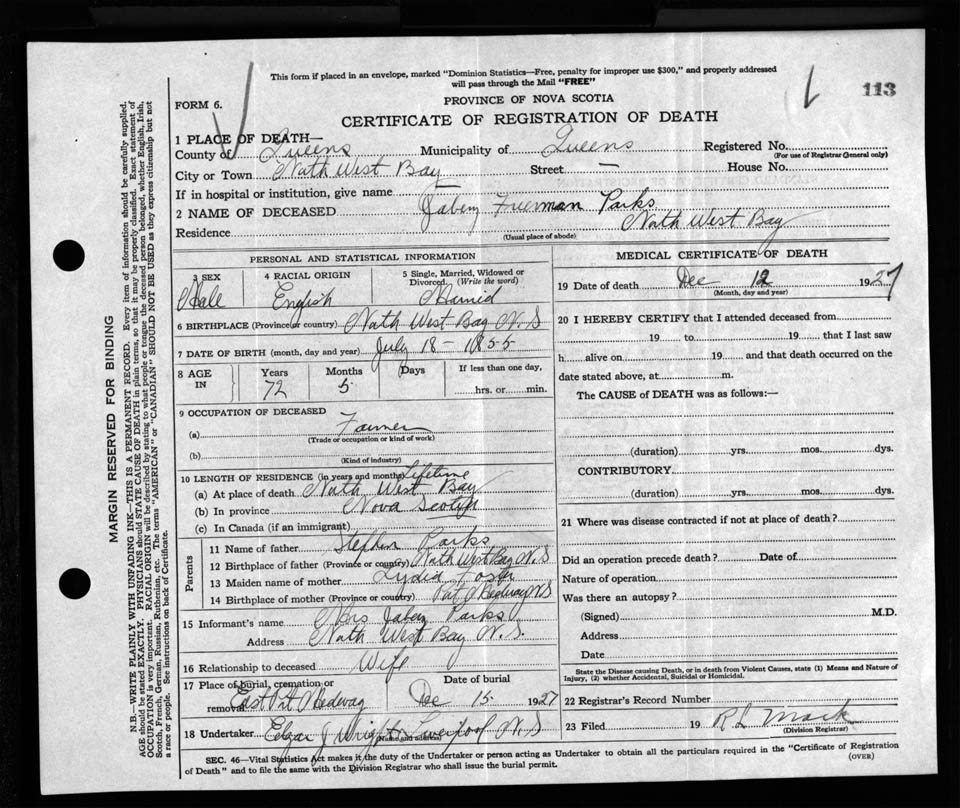 This form if placed in an envelope, marked "Dominion Statistics—Free, penalty for improper use $300," and properly addressed
will pass through the Mail "FREE"
113
FORM 6.
PROVINCE OF NOVA SCOTIA
CERTIFICATE OF REGISTRATION OF DEATH
1 PLACE OF DEATH—
County of Queens Municipality of Queens Registered No.
(For use of Registrar General only)
City or Town North West Bay Street — House No.
If in hospital or institution, give name
2 NAME OF DECEASED Jabez Freeman Parks
Residence North West Bay
(Usual place of abode)
PERSONAL AND STATISTICAL INFORMATION
3 SEX 4 RACIAL ORIGIN 5 Single, Married, Widowed or
Divorced. (Write the word)
Male English Married
6 BIRTHPLACE (Province or country) North West Bay N.S
7 DATE OF BIRTH (month, day and year) July 18 - 1855
8 AGE IN Years Months Days If less than one day,
72 5 hrs. or min.
9 OCCUPATION OF DECEASED
(a) Farmer
(Trade or occupation or kind of work)
(b)
(Kind of industry)
10 LENGTH OF RESIDENCE (in years and months) Lifetime
(a) At place of death North West Bay
(b) In province Nova Scotia
(c) In Canada (if an immigrant)
Parents
11 Name of father Stephen Parks
12 Birthplace of father (Province or country) North West Bay N.S
13 Maiden name of mother Lydia Foster
14 Birthplace of mother (Province or country) Pt. Medway NS
15 Informant's name Mrs Jabez Parks
Address North West Bay N.S.
16 Relationship to deceased Wife
17 Place of burial, cremation or
removal Date of burial
East Pt Medway Dec 15 1927
18 Undertaker Edgar J Wright Liverpool N.S
(Name and address)
MEDICAL CERTIFICATE OF DEATH
19 Date of death Dec 12 1927
(Month, day and year)
20 I HEREBY CERTIFY that I attended deceased from
19 to 19 that I last saw
h alive on 19 and that death occurred on the
date stated above, at m.
The CAUSE of DEATH was as follows:—
(duration) yrs. mos. dys.
CONTRIBUTORY
(duration) yrs. mos. dys.
21 Where was disease contracted if not at place of death?
Did an operation precede death? Date of
Nature of operation
Was there an autopsy?
(Signed) M.D.
Address
Date
State the Disease causing Death, or in death from Violent Causes, state (1) Means and Nature of
Injury, (2) whether Accidental, Suicidal or Homicidal.
22 Registrar's Record Number
23 Filed 19 R L Mack
(Division Registrar)
SEC. 46—Vital Statistics Act makes it the duty of the Undertaker or person acting as Undertaker to obtain all the particulars required in the "Certificate of Registration
of Death" and to file the same with the Division Registrar who shall issue the burial permit.
(OVER)
MARGIN RESERVED FOR BINDING
N.B.—WRITE PLAINLY WITH UNFADING INK—THIS IS A PERMANENT RECORD. Every item of information should be carefully supplied.
AGE should be stated EXACTLY. PHYSICIANS should STATE CAUSE OF DEATH in plain terms, so that it may be properly classified. Exact statement of
OCCUPATION is very important. RACIAL ORIGIN will be described by stating to what people or tongue the deceased person belonged, whether English, Irish,
Scotch, French, German, Russian, Ruthenian, etc. The terms "AMERICAN" or "CANADIAN" SHOULD NOT BE USED as they express citizenship but not
a race or people. See instructions on back of Certificate.